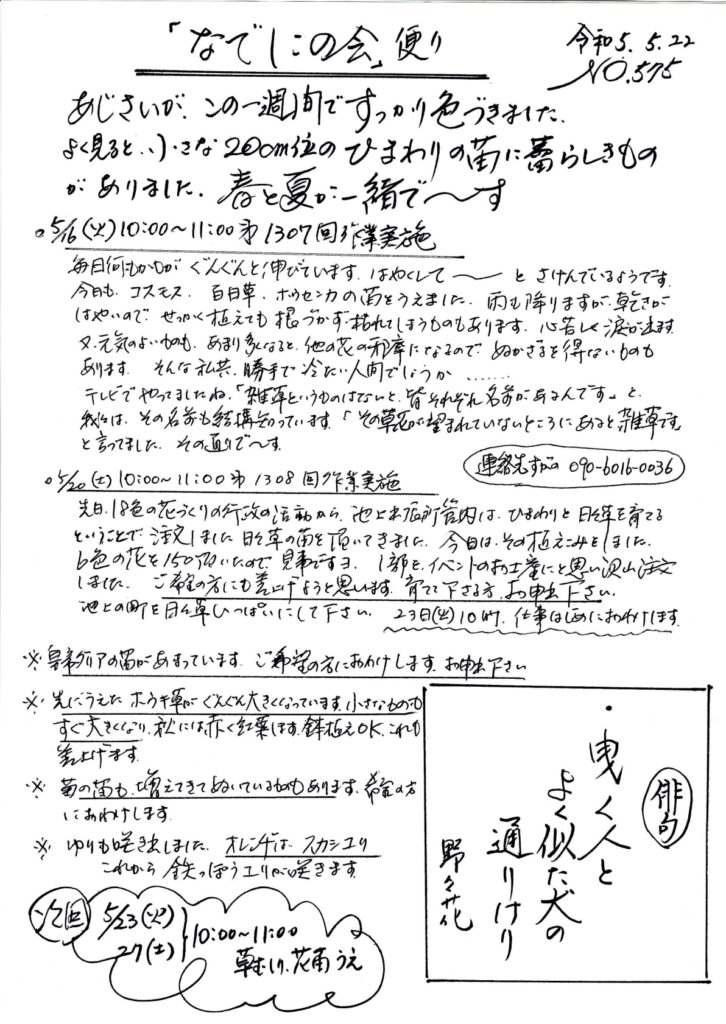 「なでしこの会」便り
令和5.5.22
NO.575
あじさいが、この一週間ですっかり色づきました。
よく見ると、小さな20cm位のひまわりの苗に蕾らしきもの
がありました。春と夏が一緒で〜す
○5/16(火)10:00〜11:00 第1307回作業実施
毎日何もかもが ぐんぐんと伸びています。はやくして〜〜 と さけんでいるようです。
今日も、コスモス、百日草、ホウセンカの苗をうえました。雨も降りますが、乾きが
はやいので、せっかく植えても根づかず枯れてしまうものもあります。心苦しく涙が出ます
又、元気のよいものも、あまり多くなると、他の花の邪魔になるので ぬかざるを得ないものも
あります。そんな私共、勝手で冷たい人間でしょうか……
テレビでやってましたね。「雑草というものはないと、皆それぞれ名前があるんです」と、
我々は、その名前も結構知っています「その草花が望まれていないところにあると雑草です」
と言ってました。その通りで〜す。
連絡先すがの 090-6016-0036
○5/20(土)10:00〜11:00 第1308回作業実施
先日、18色の花づくりの行政の活動から、池上出張所管内は、ひまわりと日々草を育てる
ということで 注文しました日々草の苗を頂いてきました。今日は、その植えこみをしました。
6色の花を150頂いたので、見事ですヨ。1部を、イベンのお土産にと思い沢山注文
しました。ご希望の方にも差上げようと思います。育てて下さる方、お申出下さい。
池上の町を日々草いっぱいにして下さい。23日(火)10時、仕事はじめにおわけします。
※皇帝ダリアの苗があまっています。ご希望の方におわけします。お申出下さい
※先にうえた ホウキ草がぐんぐん大きくなっています。小さなものでも
すぐ大きくなり、秋には赤く紅葉します。鉢植えOK。これも
差上げます。
※菊の苗も、増えてきてぬいているものもあります。希望の方
におわけします。
※ゆりも咲き出しました。オレンヂは スカシユリ
これから 鉄っぽうユリが咲きます。
次回
5/23(火)
27(土)
10:00〜11:00
草むしり、花苗うえ
俳句
・曳く人と
よく似た犬の
通りけり
野々花